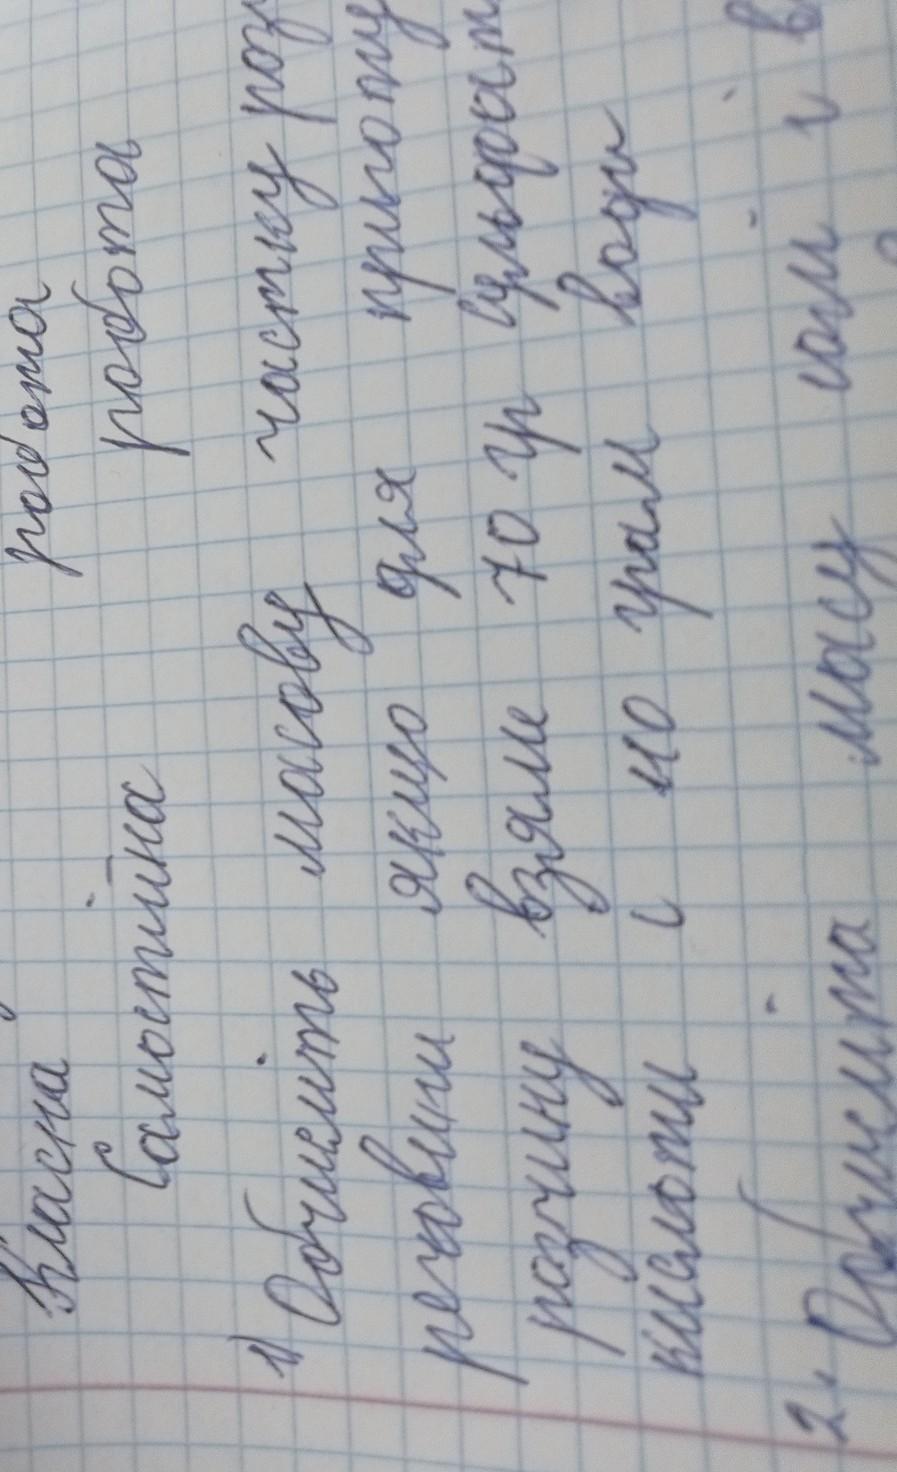 Класна робота
Самостійна робота
1) Обчисліть масову частку роз
речовини якщо для приготу
розчину взяли 70 гр сульфат
кислоти і 110 грам води
2. Обчисліть масу солі і в